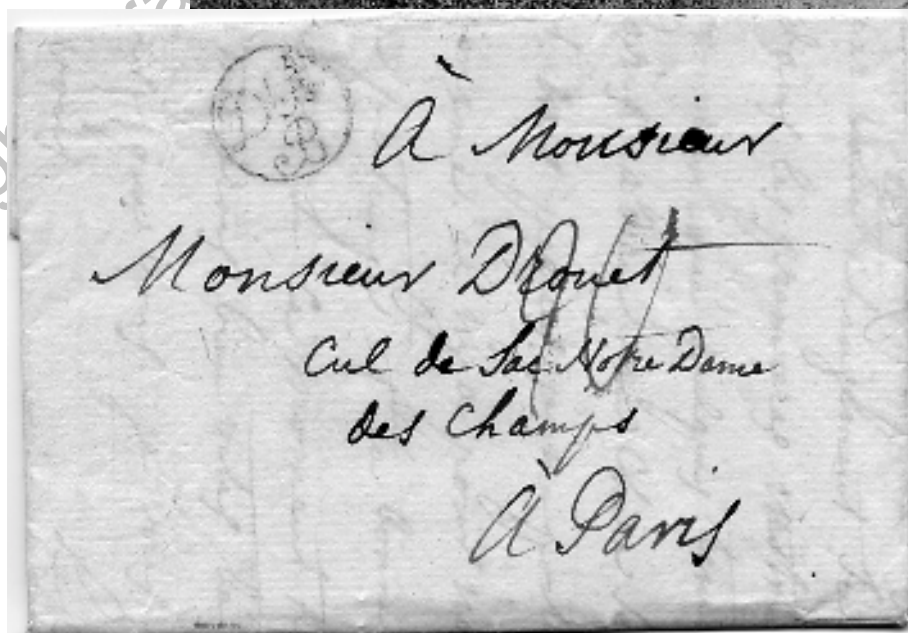 À Monsieur
Monsieur Drouet
Cul de Sac Notre Dame
des Champs
À Paris